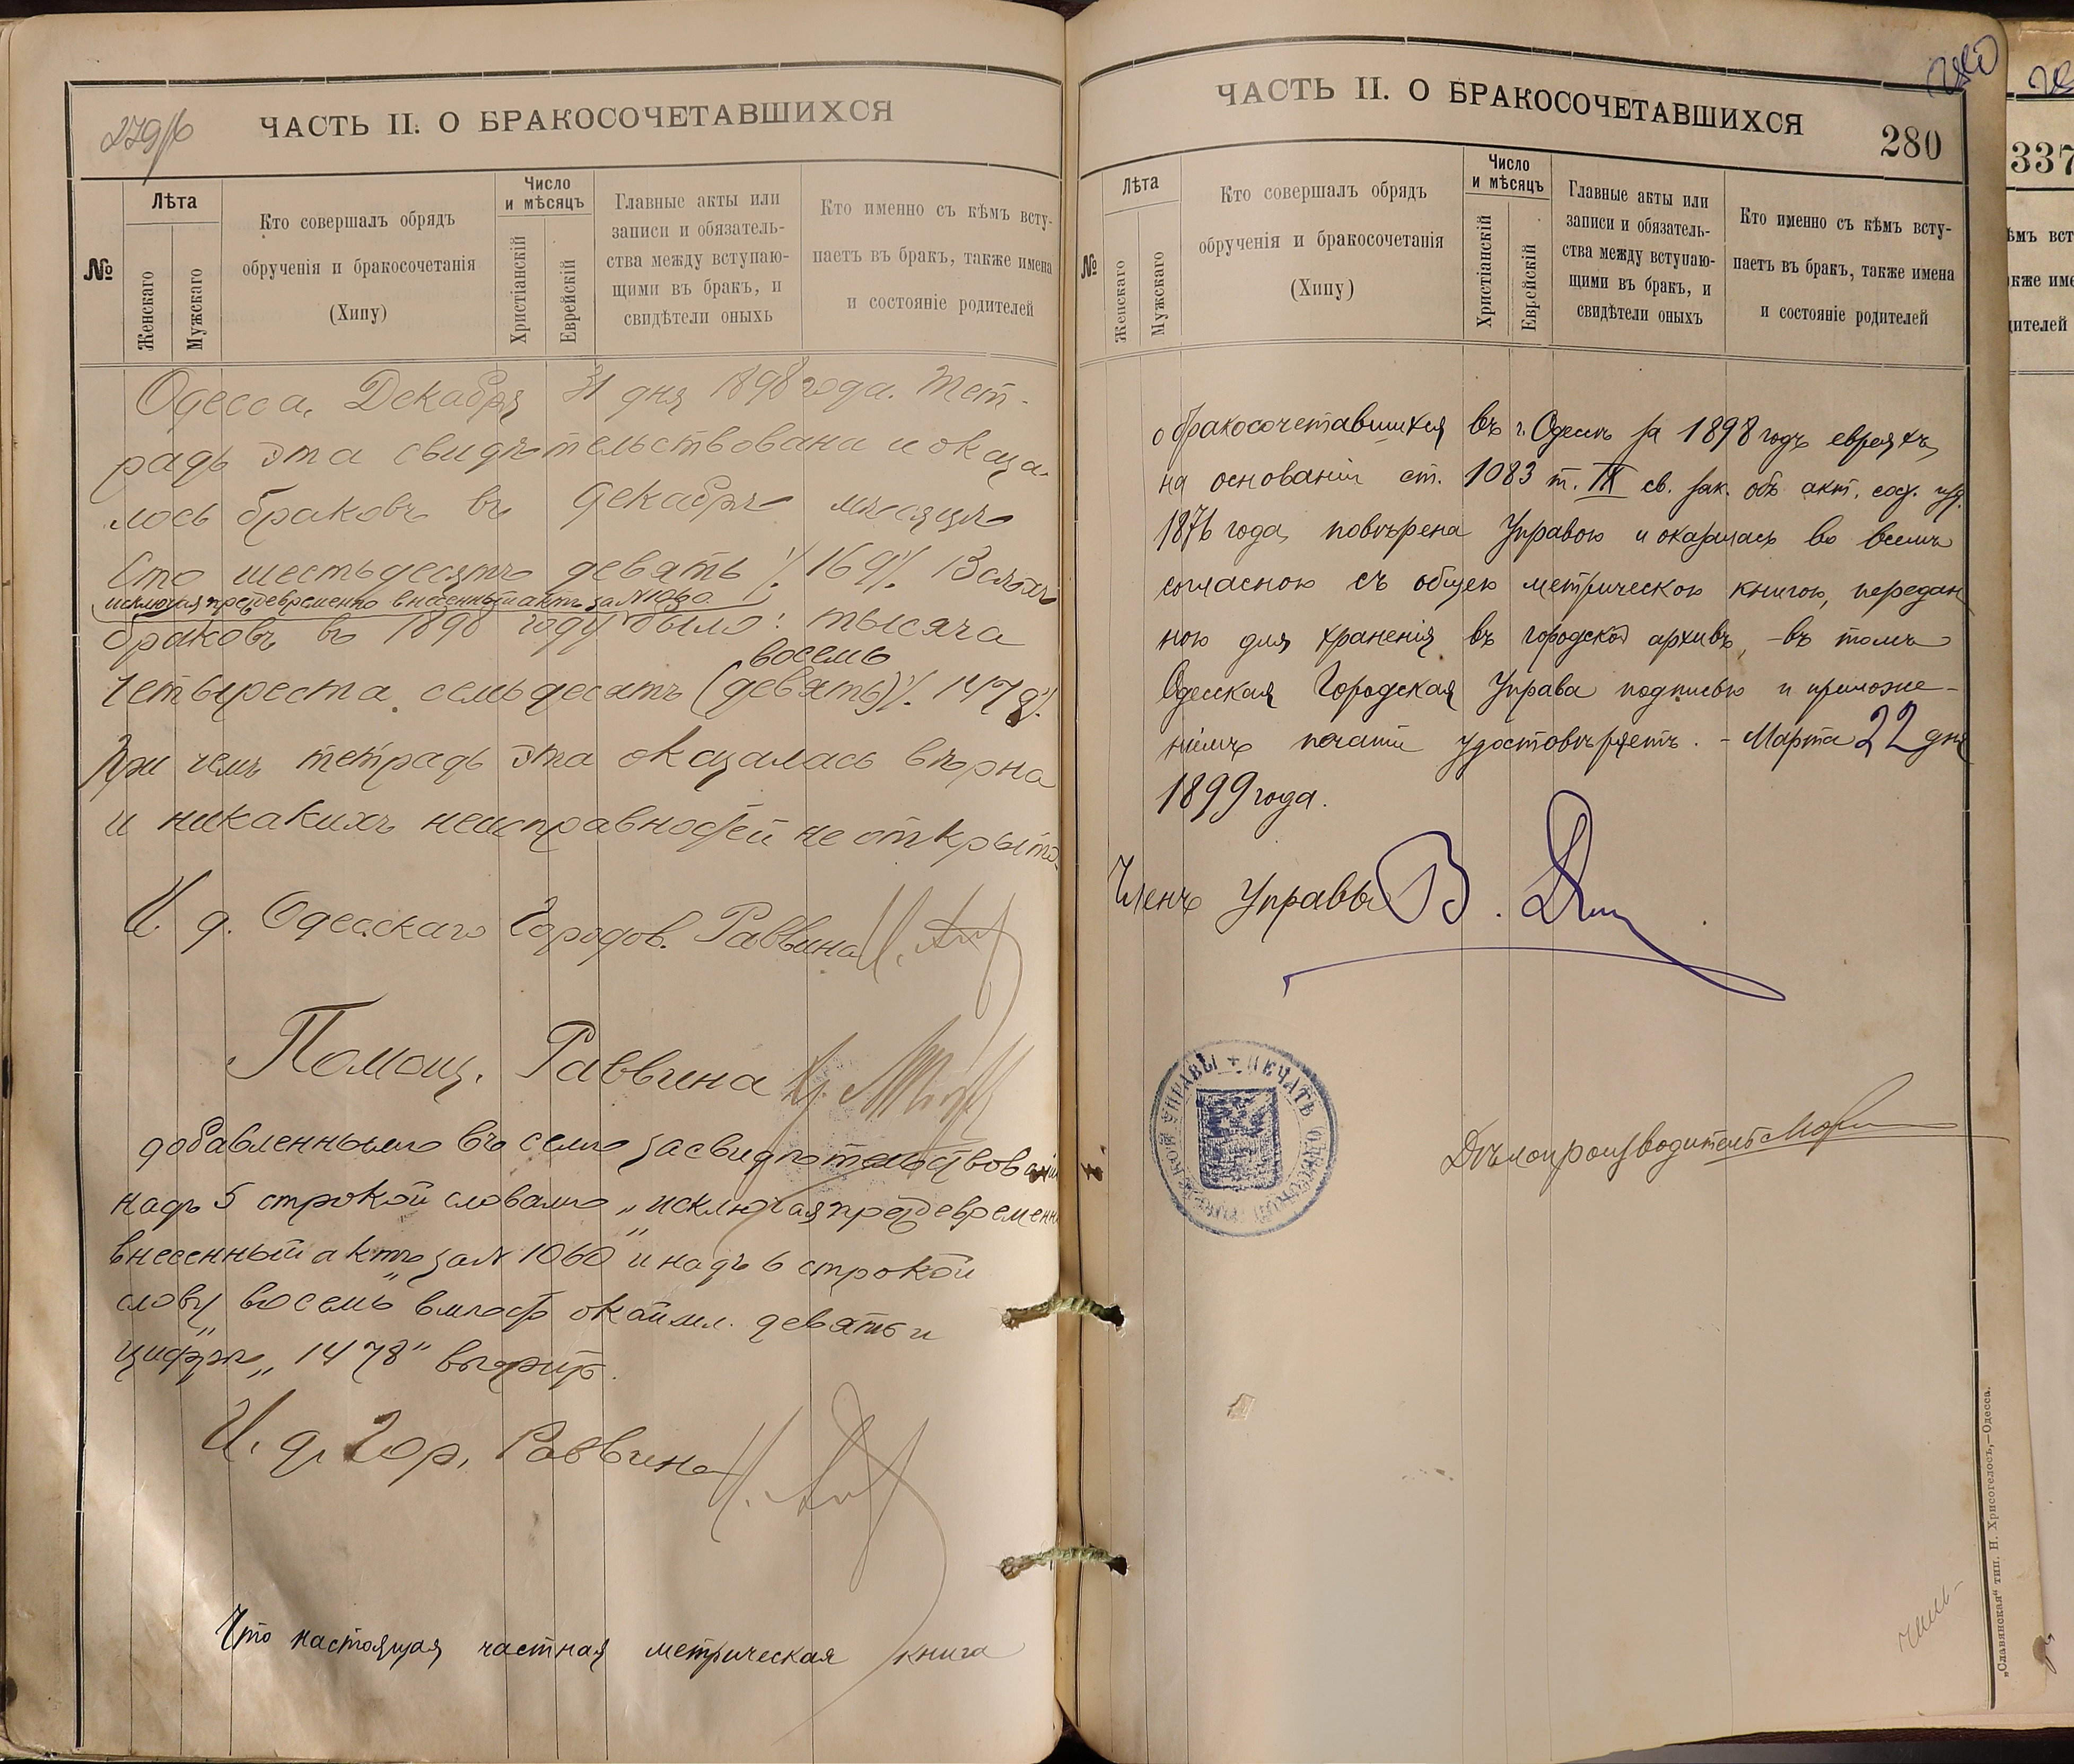 279/б
ЧАСТЬ II. О БРАКОСОЧЕТАВШИХСЯ
№
Лѣта
Женскаго
Мужскаго
Кто совершалъ обрядъ
обрученія и бракосочетанія
(Хипу)
Число
и мѣсяцъ
Христіанскій
Еврейскій
Главные акты или
записи и обязатель-
ства между вступаю-
щими въ бракъ, и
свидѣтели оныхъ
Кто именно съ кѣмъ всту-
паетъ въ бракъ, также имена
и состояніе родителей
Одесса, Декабря 31 дня 1898 года. Тет-
радь эта свидѣтельствована и оказа-
лось браковъ въ декабрѣ мѣсяцѣ
Сто шестьдесятъ девять ٪ 169٪. Всѣхъ
исключая предевременно внесенный актъ за N 1060.
браковъ въ 1898 году было: тысяча
восемь
четыреста семьдесятъ (девять)٪. 1478٪.
При чемъ тетрадь эта оказалась вѣрна
и никакихъ неисправностей не открыто.
И. д. Одесскаго Городов. Раввина
Помощ. Раввина
добавленнымъ въ семъ засвидѣтельствованіи
надъ 5 строкой словамъ „исключая предевременно
внесенный актъ за N 1060" и надъ 6 строкой
слову „восемь" вмѣсто окаймл. девять и
цифры „1478" вѣрить.
И. д. Гор. Раввина
Что настоящая частная метрическая книга
ЧАСТЬ II. О БРАКОСОЧЕТАВШИХСЯ
280
280
№
Лѣта
Женскаго
Мужскаго
Кто совершалъ обрядъ
обрученія и бракосочетанія
(Хипу)
Число
и мѣсяцъ
Христіанскій
Еврейскій
Главные акты или
записи и обязатель-
ства между вступаю-
щими въ бракъ, и
свидѣтели оныхъ
Кто именно съ кѣмъ всту-
паетъ въ бракъ, также имена
и состояніе родителей
о бракосочетавшихся въ г. Одессѣ за 1898 годъ евреяхъ,
на основаніи ст. 1083 т. IX св. зак. объ акт. сос. изд.
1876 года, повѣрена Управою и оказалась во всемъ
согласною съ общею метрическою книгою, передан
ною для храненія въ городской архивъ, - въ томъ
Одесская Городская Управа подписью и приложе-
ніемъ печати удостовѣряетъ. - Марта 22 дня
1899 года.
Членъ Управы В.
ПЕЧАТЬ ОДЕССКОЙ ГОРОДСКОЙ УПРАВЫ
Дѣлопроизводитель
„Славянская" тип. Н. Хрисогелосъ,—Одесса.
337